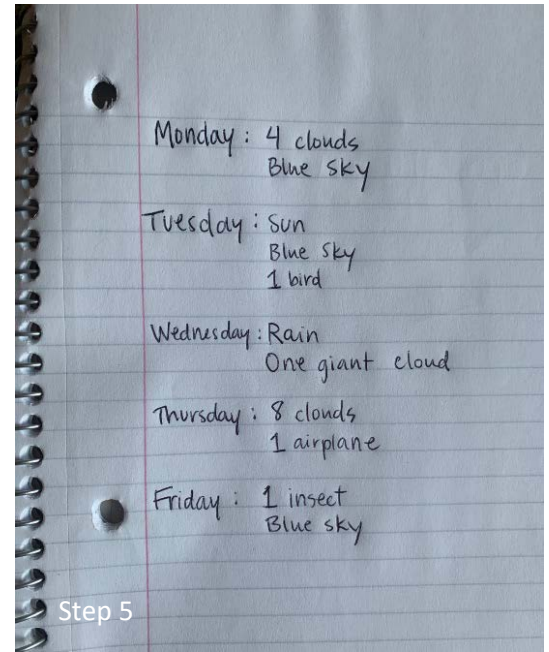 Monday: 4 clouds
Blue sky
Tuesday: Sun
Blue sky
1 bird
Wednesday: Rain
One giant cloud
Thursday: 8 clouds
1 airplane
Friday: 1 insect
Blue sky
Step 5